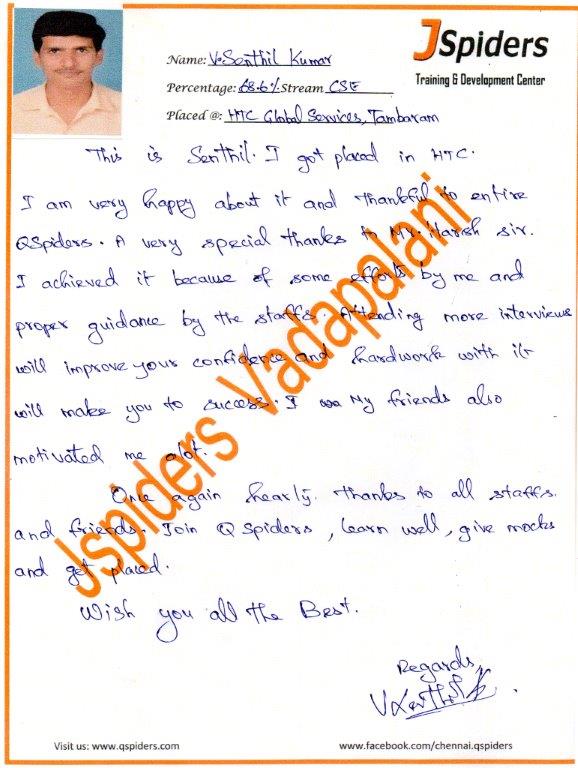 JSpiders
Training & Development Center
Name: V. Senthil Kumar
Percentage: 68.6% Stream CSE
Placed @: HTC Global Services, Tambaram
This is Senthil. I got placed in HTC.
I am very happy about it and thankful to entire
QSpiders. A very special thanks to Mr. Harish sir.
I achieved it because of some efforts by me and
proper guidance by the staffs. Attending more interviews
will improve your confidence and hardwork with it
will make you to success. I wa My friends also
motivated me alot.
Once again hearly thanks to all staffs
and friends. Join QSpiders, learn well, give mocks
and get placed.
Wish you all the Best.
Regards
Jspiders Vadapalani
Visit us: www.qspiders.com
www.facebook.com/chennai.qspiders